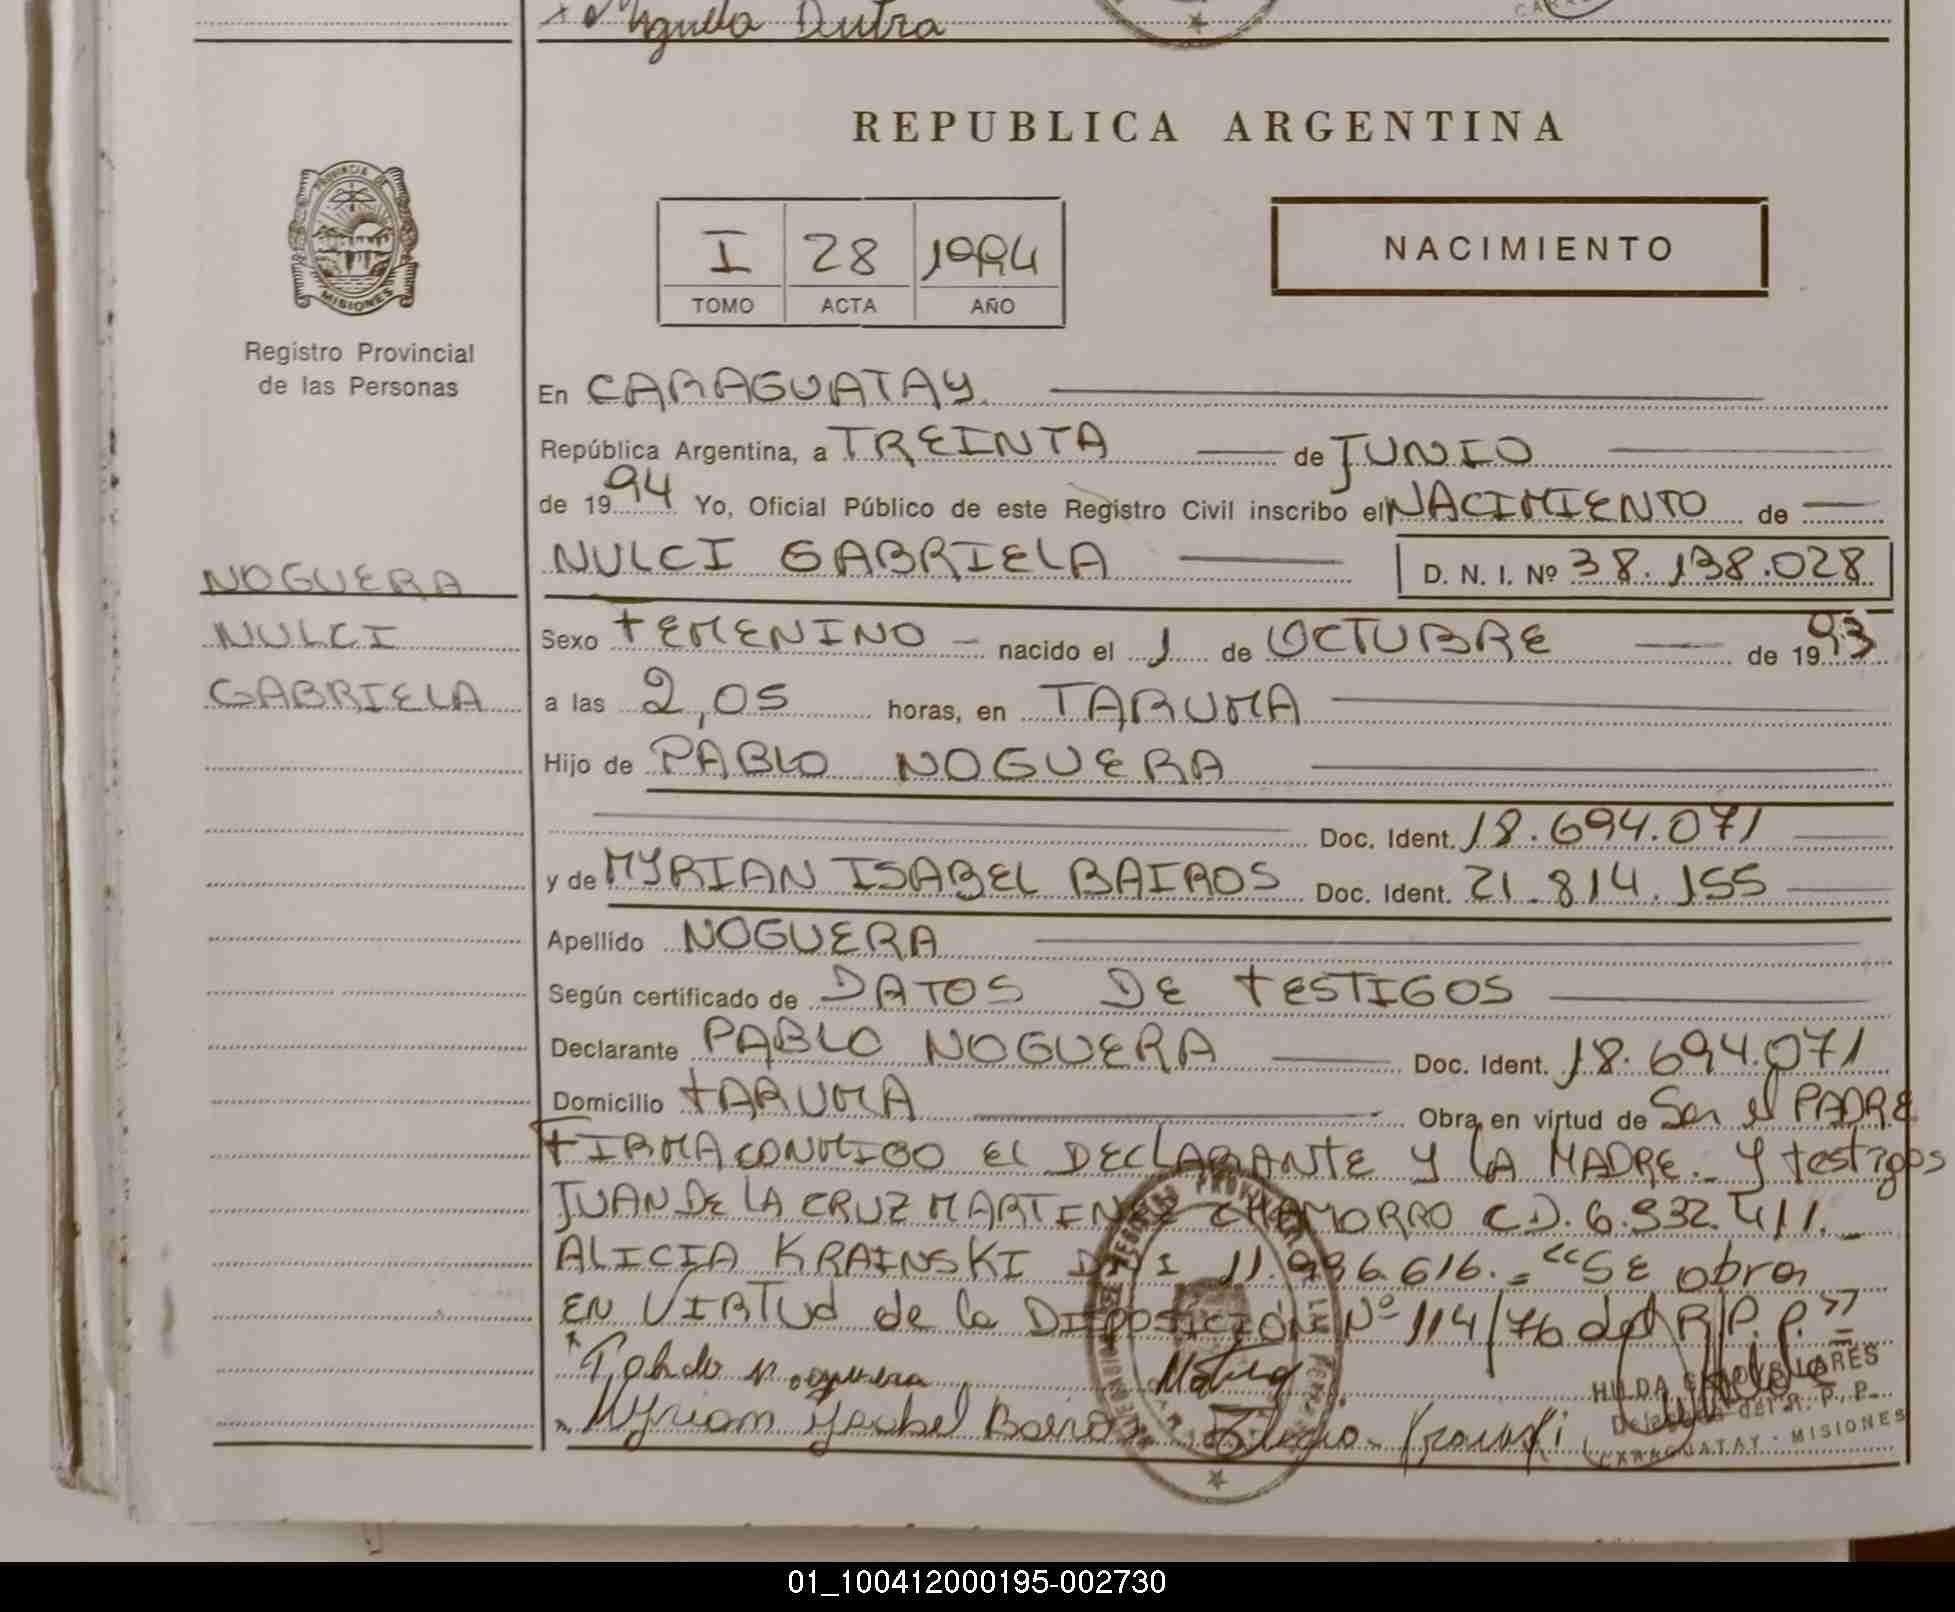 Miguela Dutra
REPUBLICA ARGENTINA
PROVINCIA DE
MISIONES
Registro Provincial
de las Personas
I 28 1994
TOMO ACTA AÑO
NACIMIENTO
En CARAGUATAY
República Argentina, a TREINTA de JUNIO
de 1994 Yo, Oficial Público de este Registro Civil inscribo el NACIMIENTO de
NULCI GABRIELA D. N. I. Nº 38.138.028
NOGUERA
NULCI
GABRIELA
Sexo FEMENINO nacido el 1 de OCTUBRE de 1993
a las 2,05 horas, en TARUMA
Hijo de PABLO NOGUERA
Doc. Ident. 18.694.071
y de MYRIAN ISABEL BAIROS Doc. Ident. 21.814.155
Apellido NOGUERA
Según certificado de DATOS DE TESTIGOS
Declarante PABLO NOGUERA Doc. Ident. 18.694.071
Domicilio TARUMA Obra en virtud de Ser el PADRE
FIRMA CONMIGO EL DECLARANTE Y LA MADRE. Y testigos
JUAN DE LA CRUZ MARTINEZ CHAMORRO C.D. 6.932.411.
ALICIA KRAINSKI DNI 11.996.616. = "SE obra
EN VIRTUD de la DISPOSICIÓN Nº 114/76 del R.P.P." =
Pablo Noguera
Myriam Ysabel Bairos Alicia Krainski
HILDA
Delegada del R. P. P.
CARAGUATAY - MISIONES
01_100412000195-002730